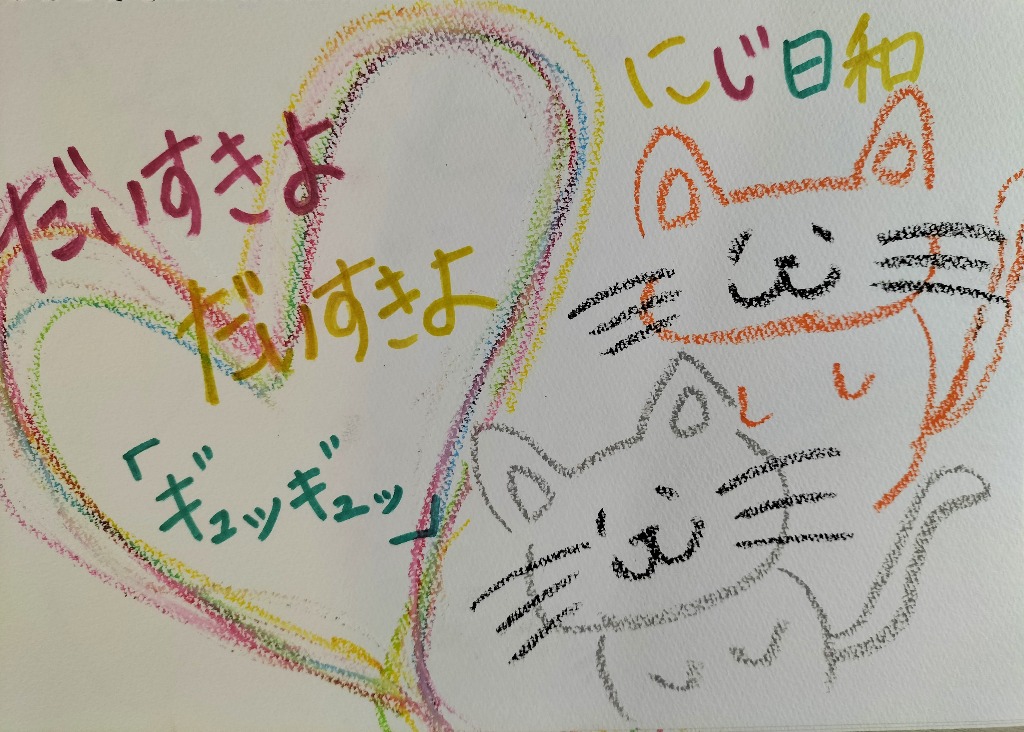 にじ日和
だいすきよ
だいすきよ
「ギュッギュッ」